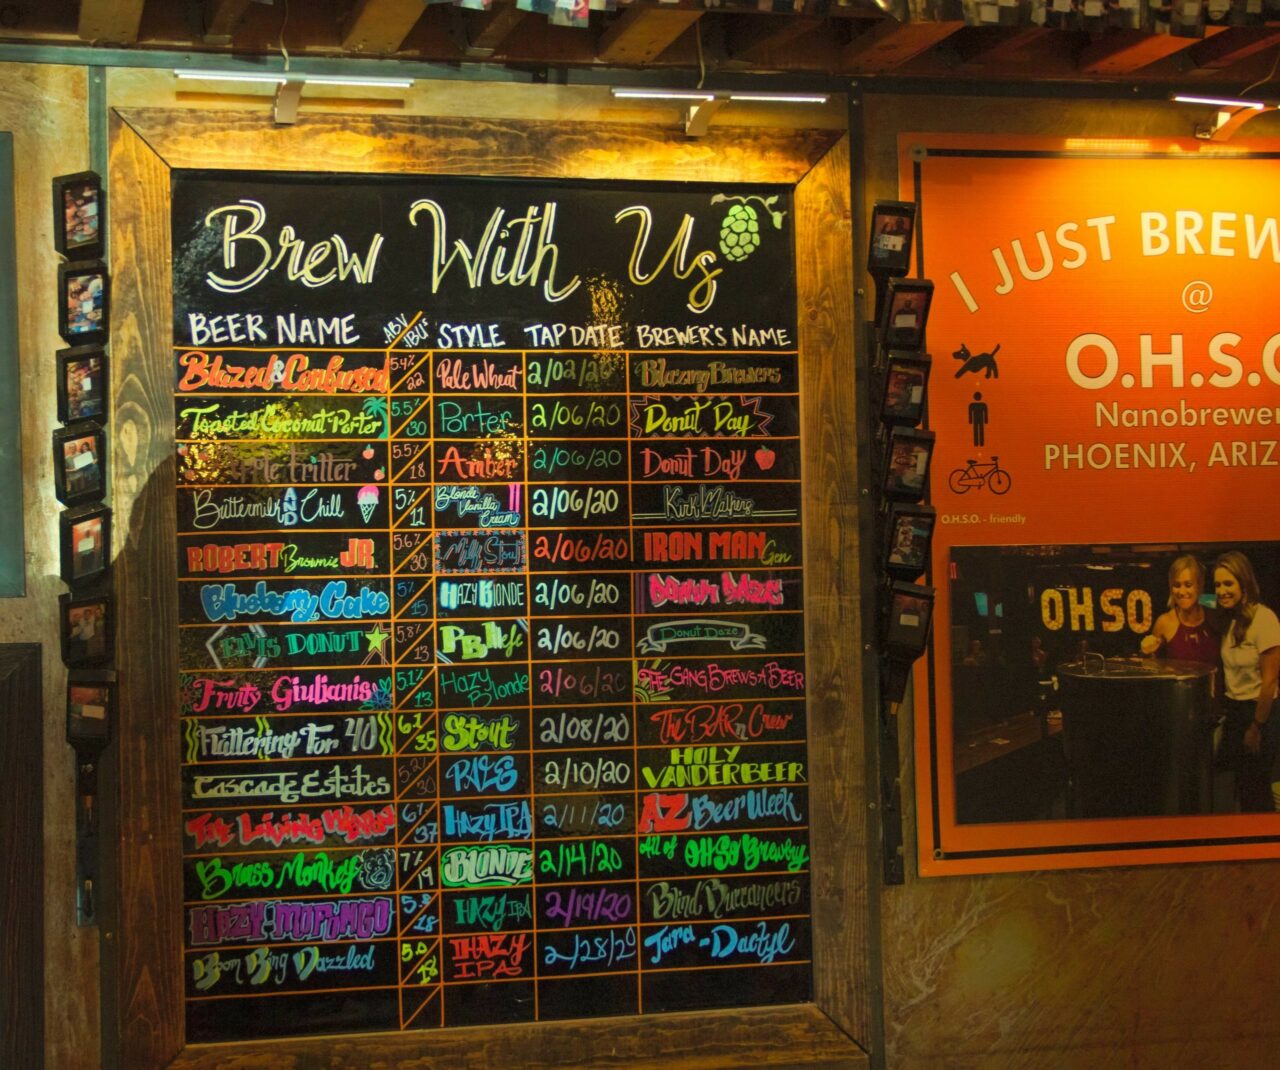 Brew With Us
BEER NAME ABV IBU'S STYLE TAP DATE BREWER'S NAME
Blazed & Confused 5.4% 22 Pale Wheat 2/02/20 Blazing Brewers
Toasted Coconut Porter 5.5% 30 Porter 2/06/20 Donut Day
Apple Fritter 5.5% 18 Amber 2/06/20 Donut Day
Buttermilk AND Chill 5% 11 Blonde Vanilla Cream 2/06/20 Kirk Mathers
ROBERT Brownie JR. 5.6% 30 Milk Stout 2/06/20 IRON MAN Gen
Blueberry Cake 5% 15 HAZY BLONDE 2/06/20 DONUT DAZE
ELVIS DONUT 5.8% 13 PB Hefe 2/06/20 DONUT DAZE
Fruity Giulianis 5.1% 13 Hazy Blonde 2/06/20 THE GANG BREWS A BEER
Fluttering For 40 6% 35 Stout 2/08/20 The BARn Crew
CASCADE ESTATES 5.2% 30 PALE 2/10/20 HOLY VANDERBEER
The Living 6% 37 HAZY IPA 2/11/20 AZ Beer Week
Brass Monkey 7% 19 BLONDE 2/14/20 All of OHSO Brewery
HAZY-MOFINGO 5.8 18 HAZY IPA 2/19/20 Blind Buccaneers
Boom Bing Dazzled 5.0 18 HAZY I.P.A. 2/28/20 Tara-Dactyl
I JUST BREW
@
O.H.S.O
Nanobrewe
PHOENIX, ARIZ
O.H.S.O. - friendly
OHSO